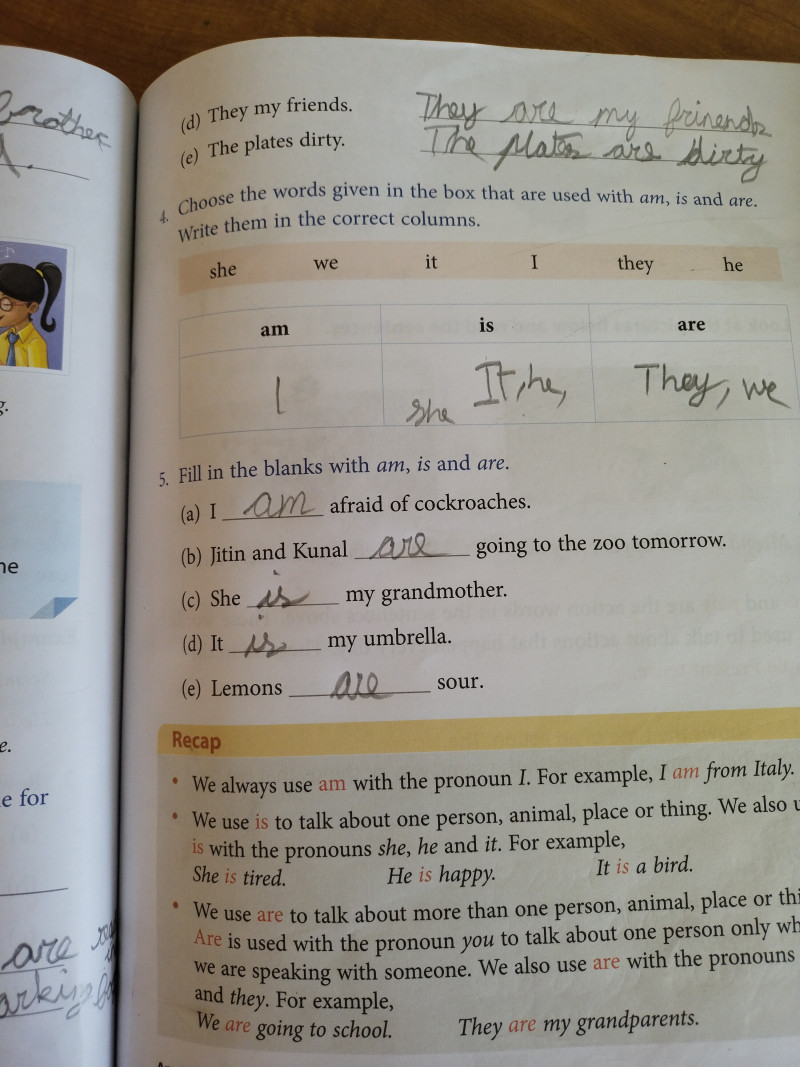 brother
(d) They my friends. They are my frinends
(e) The plates dirty. The plates are dirty
4. Choose the words given in the box that are used with am, is and are.
Write them in the correct columns.
she we it I they he
am is are
I she It, he, They, we
g.
5. Fill in the blanks with am, is and are.
(a) I am afraid of cockroaches.
(b) Jitin and Kunal are going to the zoo tomorrow.
(c) She is my grandmother.
(d) It is my umbrella.
(e) Lemons are sour.
e.
e for
are
Recap
• We always use am with the pronoun I. For example, I am from Italy.
• We use is to talk about one person, animal, place or thing. We also
is with the pronouns she, he and it. For example,
She is tired. He is happy. It is a bird.
• We use are to talk about more than one person, animal, place or thi
Are is used with the pronoun you to talk about one person only wh
we are speaking with someone. We also use are with the pronouns
and they. For example,
We are going to school. They are my grandparents.